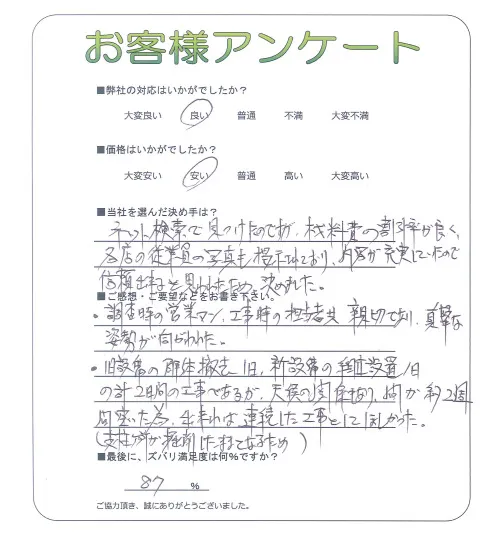 お客様アンケート
■弊社の対応はいかがでしたか？
大変良い 良い 普通 不満 大変不満
■価格はいかがでしたか？
大変安い 安い 普通 高い 大変高い
■当社を選んだ決め手は？
ネット検索で見つけたのですが、材料費の割引率が良く、
各店の従業員の写真も提示されており、内容が充実していたので
信頼出来ると思われたため、決めました。
■ご感想・ご要望などをお書き下さい。
・調査時の営業マン、工事時の担当者共 親切であり、真摯な
姿勢が向われた。
・旧設備の解体撤去1日、新設備の組立設置1日
の計2日間の工事であるが、天候の関係もあり、間が約2週
間空いた為、出来れば連続した工事としてほしかった。
(支柱 が掘削したままとなるため)
■最後に、ズバリ満足度は何％ですか？
87 ％
ご協力頂き、誠にありがとうございました。